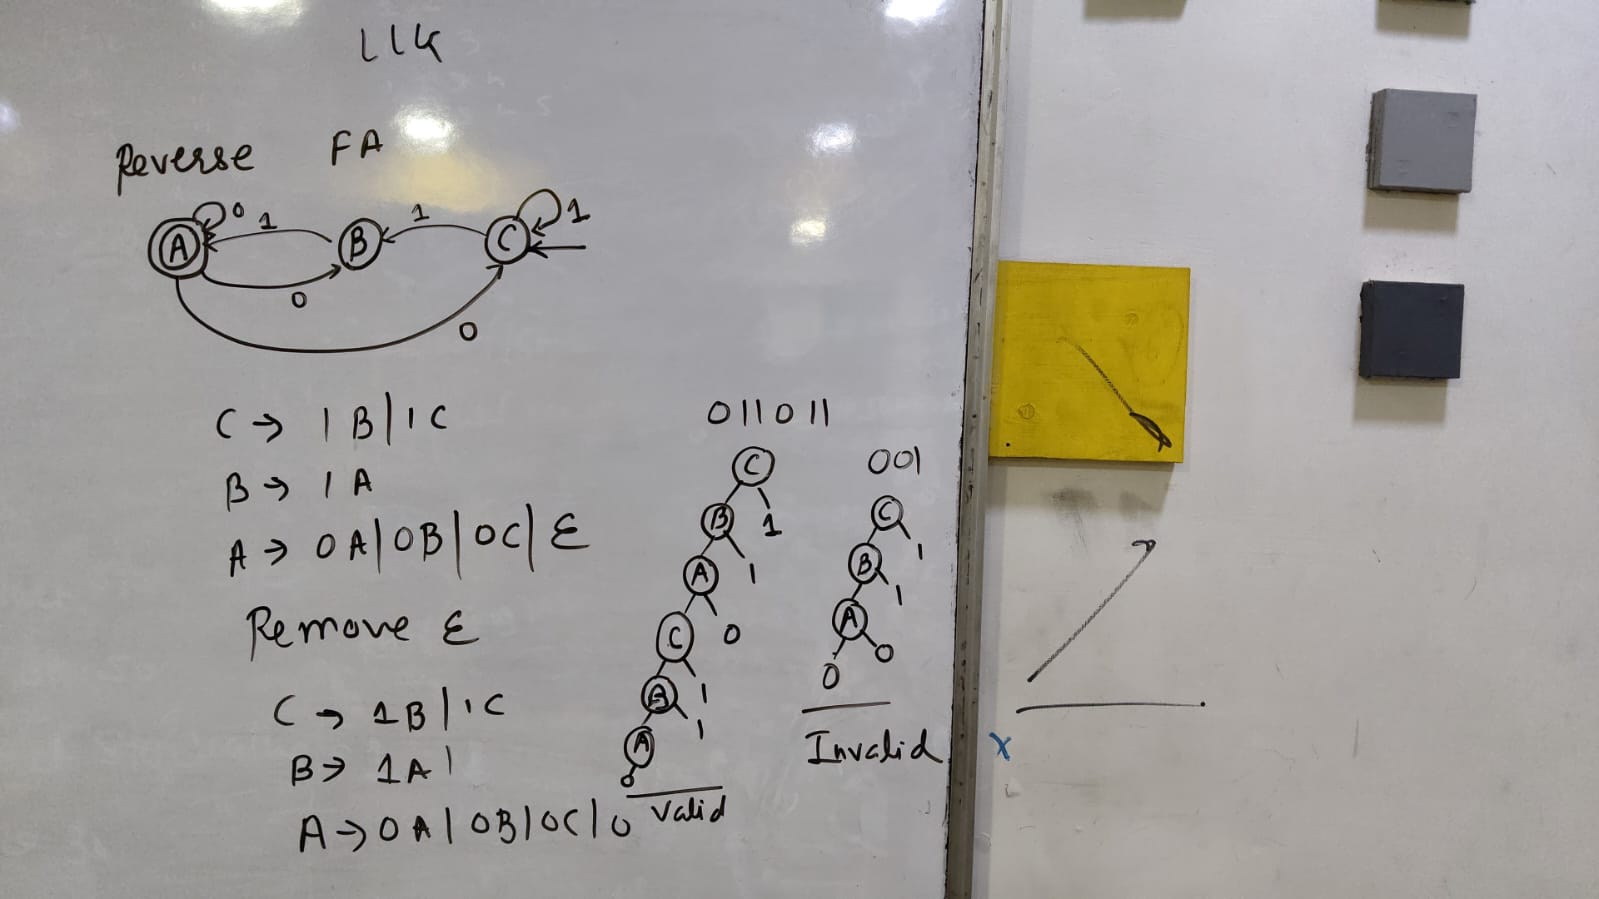 LLG
Reverse FA
A 0 1 B 1 C 1
0
0
C → 1B|1C
B → 1A
A → 0A|0B|0C|ε
Remove ε
C → 1B|1C
B → 1A|
A → 0A|0B|0C|0
011011
C
B 1
A 1
C 0
B 1
A 1
0
Valid
001
C
B 1
A 1
0 0
Invalid
x